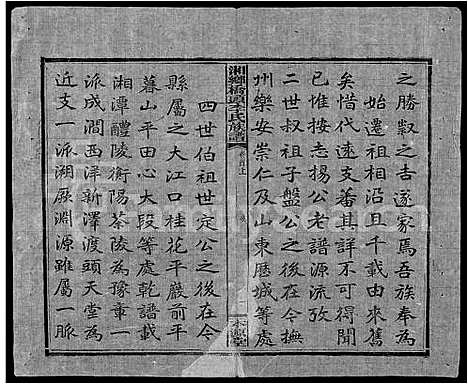 之勝觀之吉遂家焉吾族奉為
始遷祖相沿且千載由來舊
矣惜代遠支蕃其詳不可得聞
已惟按志揚公老譜源流攷
二世叔祖子盤公之後在今撫
州樂安崇仁及山東歷城等處
湘鄉橋頭李氏族譜
卷首上
四世伯祖世定公之後在今
縣屬之大江口桂花平嚴前平
暮山平田心大段等處乾譜載
湘潭醴陵衡陽茶陵為豫章一
派成澗西澤新澤渡頭天堂為
近支一派溯厥淵源雖屬一脈